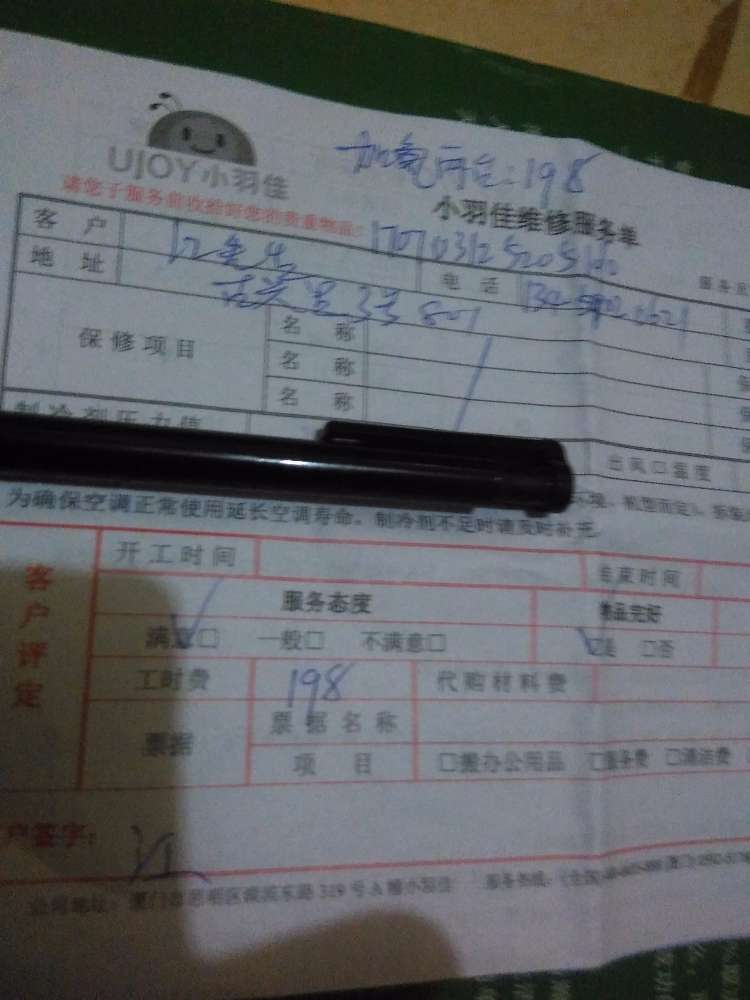 加氟两台:198
UJOY小羽佳
小羽佳维修服务单
请您于服务前收拾好您的贵重物品:
客户 江先生 电话
地址 3号801
保修项目 名称
名称
名称
制冷剂压力值 出风口温度
为确保空调正常使用延长空调寿命,制冷剂不足时请及时补充
开工时间 结束时间
客户评定 服务态度 物品完好
满意□ 一般□ 不满意□ □是 □否
工时费 198 代购材料费
票据 票据名称
项目 □搬办公用品 □服务费 □清洁费
户签字: 江
公司地址: 厦门市思明区 319号A楼小羽佳 服务热线: